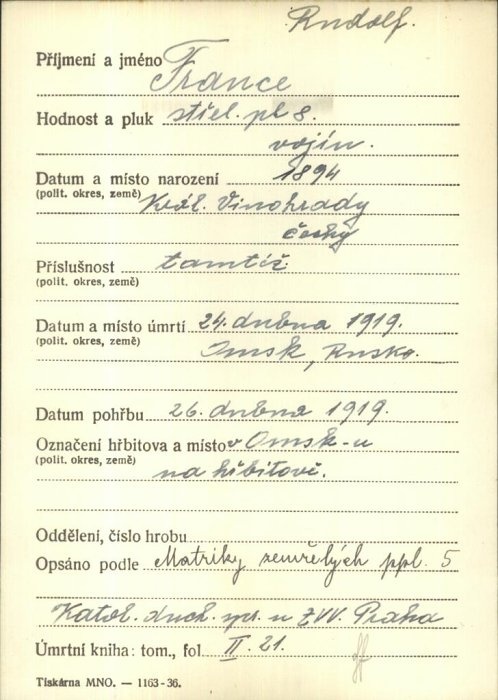 Rudolf.
Příjmení a jméno France
Hodnost a pluk střel. pl 8.
vojín.
Datum a místo narození 1894
(polit. okres, země) Král. Vinohrady
český
Příslušnost tamtéž.
(polit. okres, země)
Datum a místo úmrtí 24. dubna 1919.
(polit. okres, země) Omsk, Rusko.
Datum pohřbu 26. dubna 1919.
Označení hřbitova a místo v Omsk-u
(polit. okres, země) na hřbitově.
Oddělení, číslo hrobu
Opsáno podle Matriky zemřelých ppl. 5
Katol. duch. spr. u ZVV. Praha
Úmrtní kniha: tom., fol. II. 21.
Tiskárna MNO. — 1163-36.